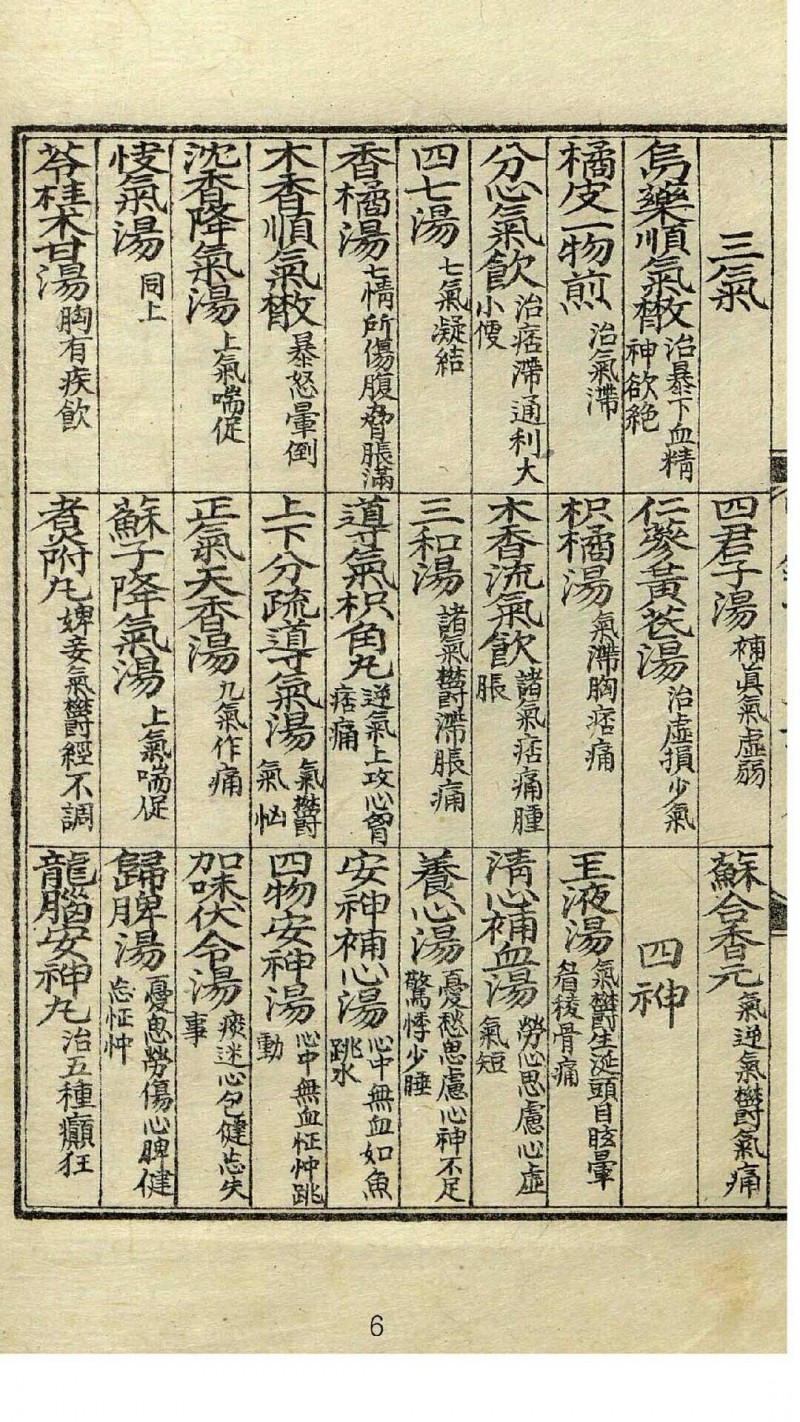 三氣
烏藥順氣散 治暴下血精神欲絶
橘皮一物煎 治氣滯
分心氣飮 治痞滯通利大小便
四七湯 七氣凝結
香橘湯 七情所傷腹脅脹滿
木香順氣散 暴怒暈倒
沈香降氣湯 上氣喘促
快氣湯 同上
苓桂朮甘湯 胸有疾飮
四君子湯 補眞氣虛弱
仁蔘黃芪湯 治虛損少氣
枳橘湯 氣滯胸痞痛
木香流氣飮 諸氣痞痛腫脹
三和湯 諸氣欝滯脹痛
導氣枳角丸 逆氣上攻心胷痞痛
上下分疏導氣湯 氣欝氣恼
正氣天香湯 九氣作痛
蘇子降氣湯 上氣喘促
煮附丸 婢妾氣欝經不調
蘇合香元 氣逆氣欝氣痛
四神
玉液湯 氣欝生涎頭目眩暈眉稜骨痛
淸心補血湯 勞心思慮心虛氣短
養心湯 憂愁思慮心神不足驚悸少睡
安神補心湯 心中無血如魚跳水
四物安神湯 心中無血怔忡跳動
加味伏令湯 痰迷心包健忘失事
歸脾湯 憂思勞傷心脾健忘怔忡
龍腦安神丸 治五種癲狂
6